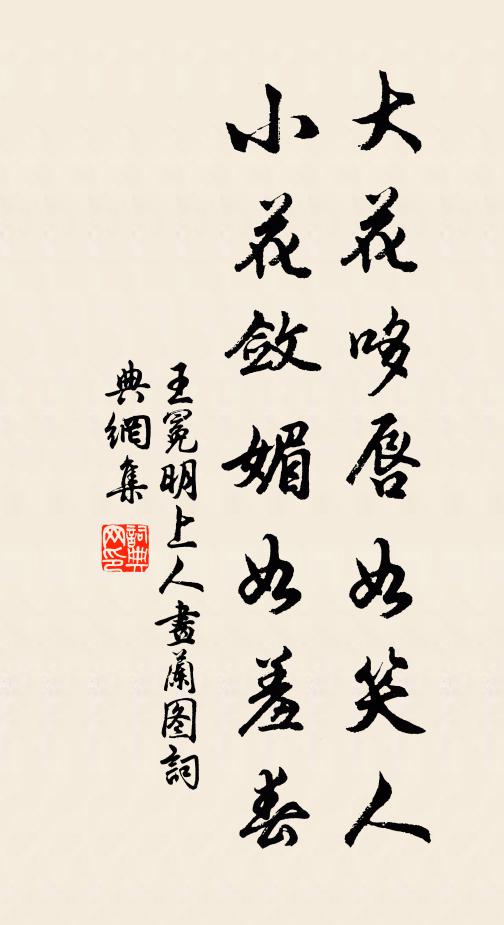 大花哆唇如笑人
小花斂媚如羞春
王冕明上人畫蘭图詞
典網集
詞典网印